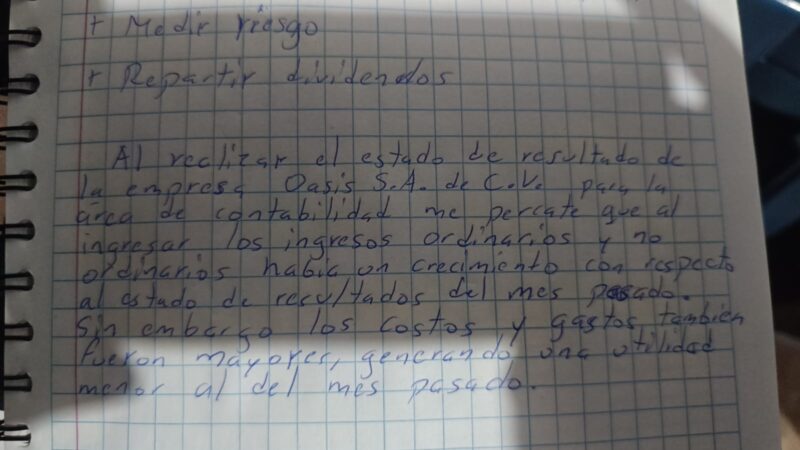 + Medir riesgo
+ Repartir dividendos
Al realizar el estado de resultado de
la empresa Oasis S.A. de C.V. para la
área de contabilidad me percate que al
ingresar los ingresos ordinarios y no
ordinarios habia un crecimiento con respecto
al estado de resultados del mes pasado.
Sin embargo los costos y gastos también
fueron mayores, generando una utilidad
menor al del mes pasado.